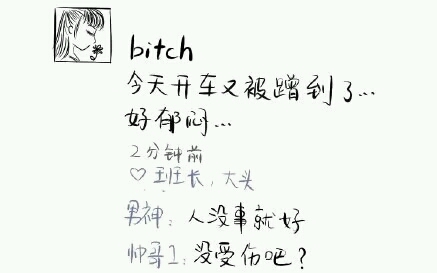 bitch
今天开车又被蹭到了...
好郁闷...
2分钟前
♡ 班长，大头
男神：人没事就好
帅哥1：没受伤吧？